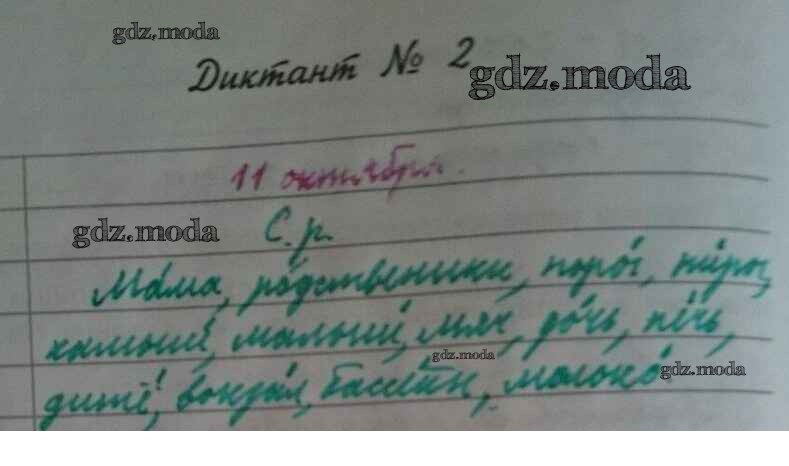 gdz.moda
Диктант № 2
gdz.moda
11 октября.
gdz.moda
С. р.
Мама, родственики, порог, пирог,
малыш, мяч, дочь, печь,
gdz.moda
gdz.moda
дитё, вокзал, басейн, молоко